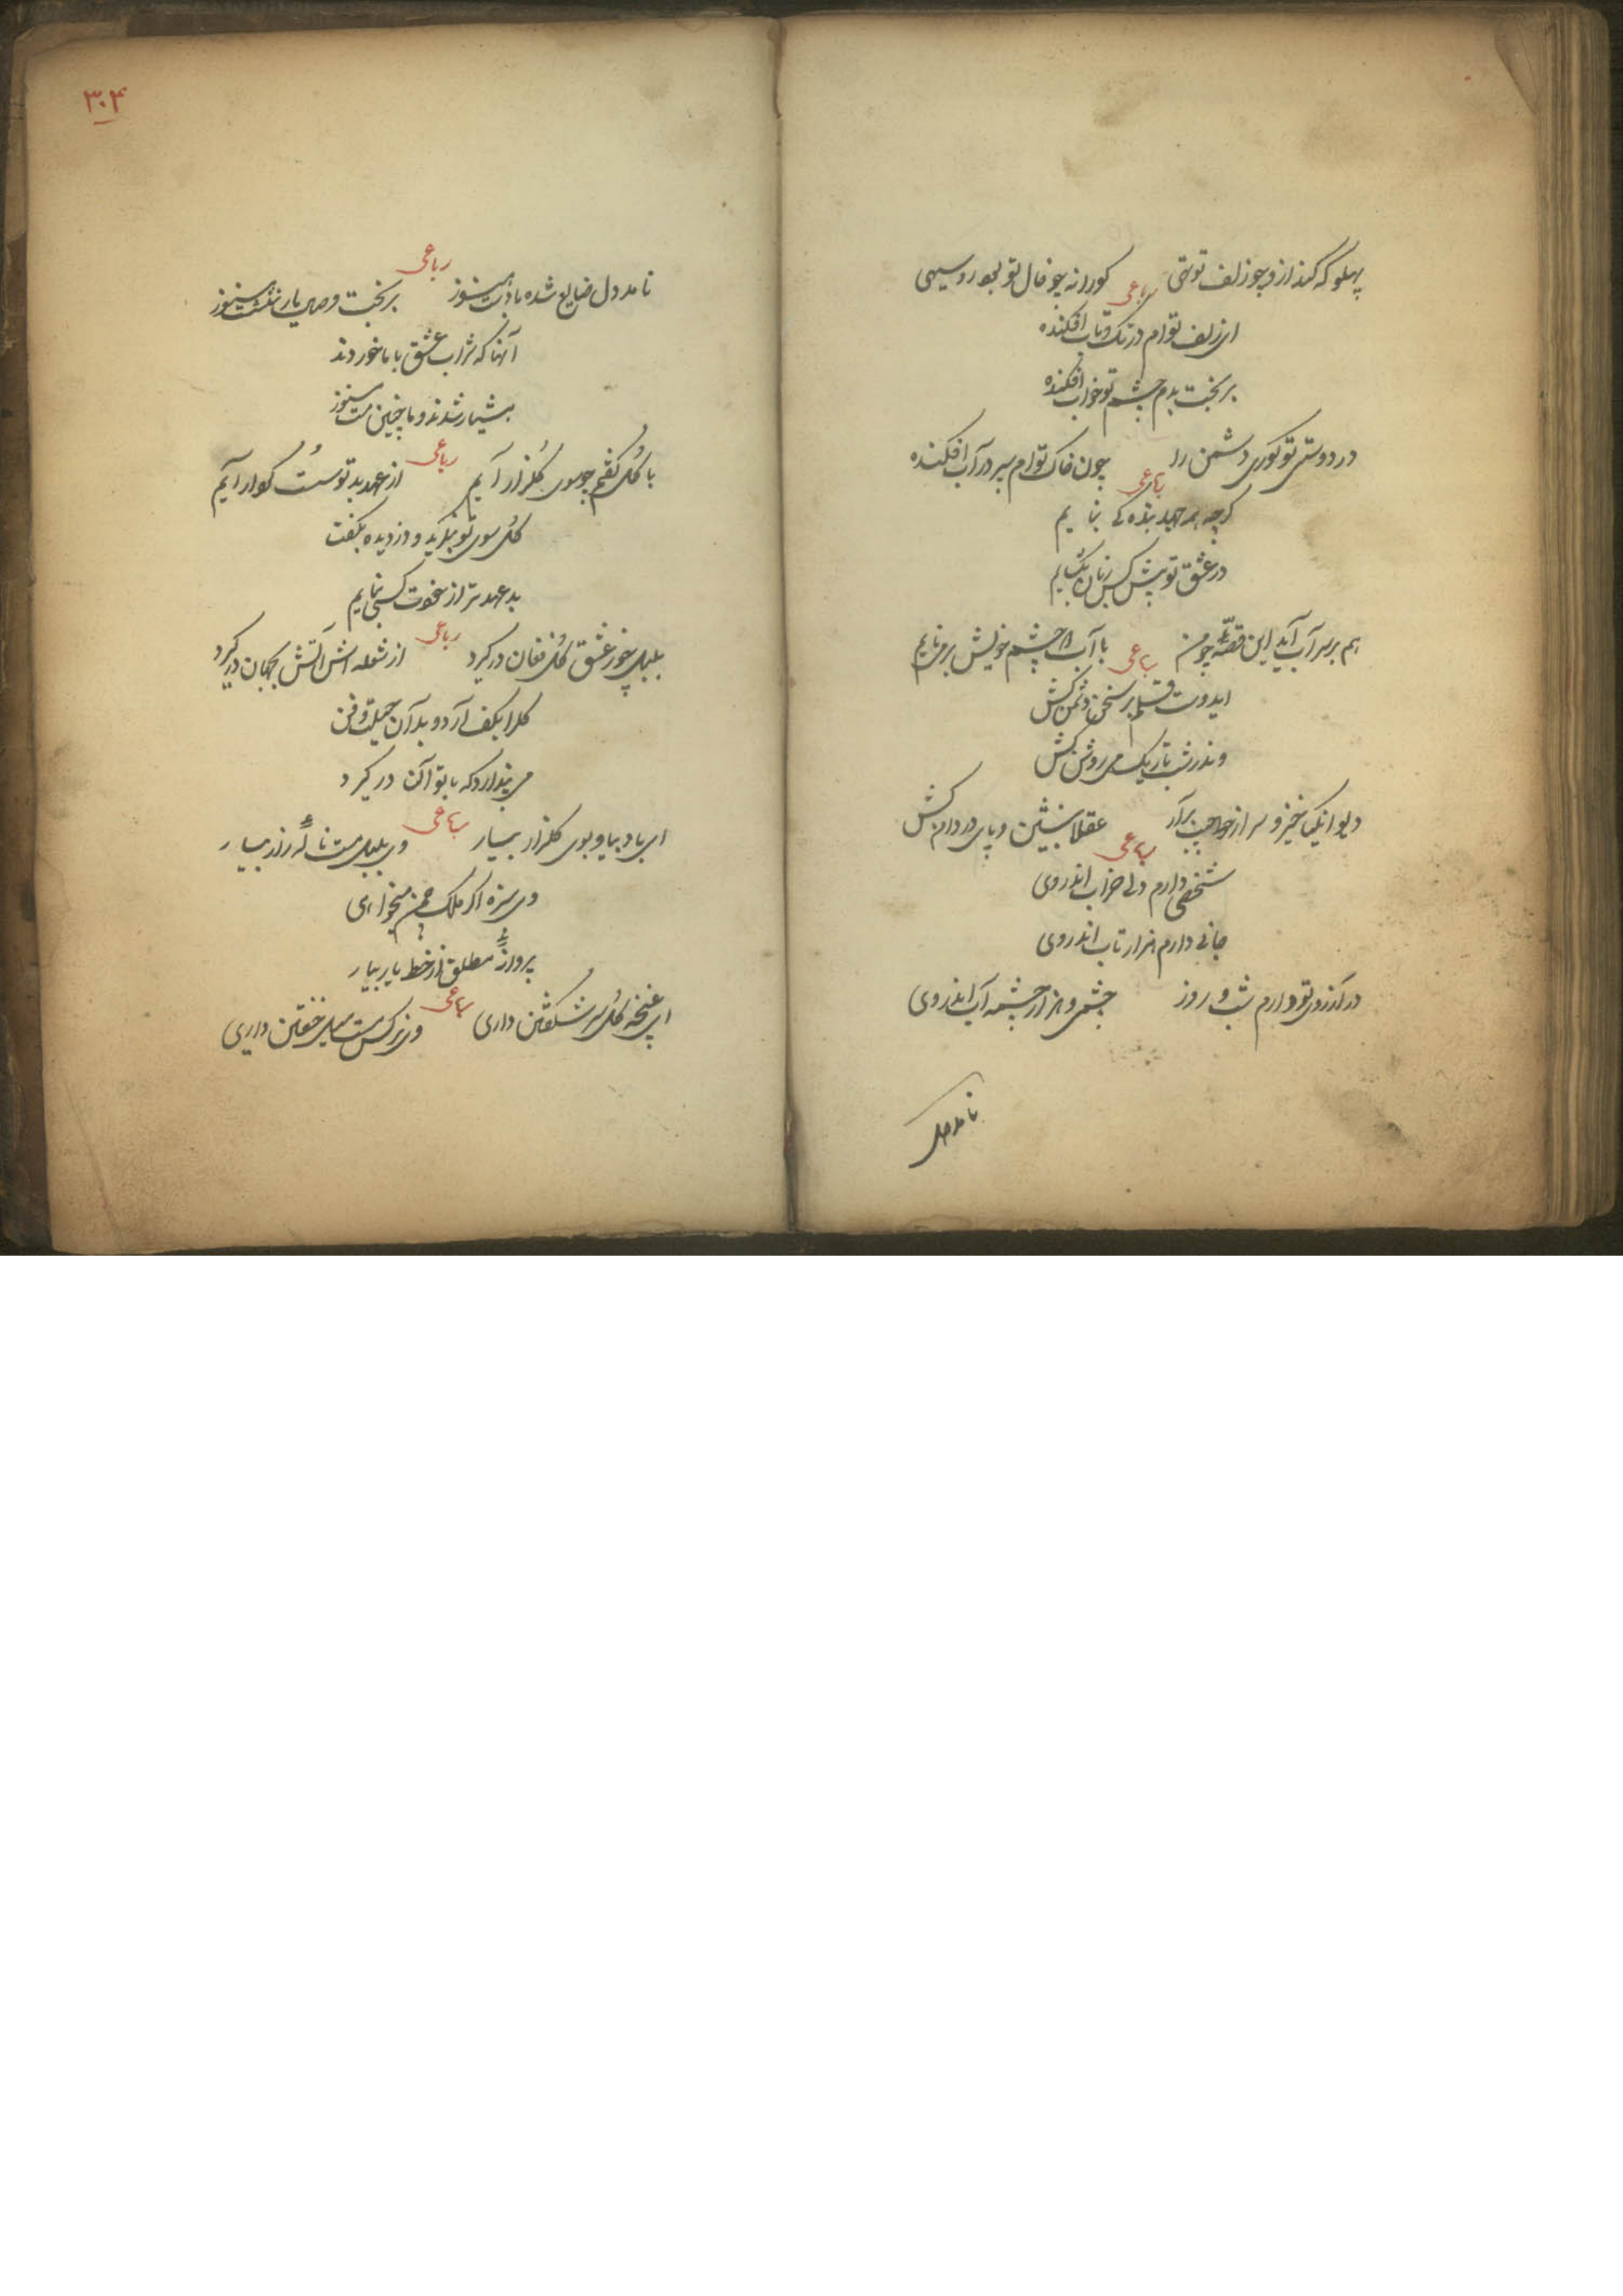 پهلو که کند ازو چو زلف تو تهی کو را نه چو خال تو بود روسیهی
رباعی
ای زلف توام در تک و تاب افکنده
بر بخت بدم چشم تو خواب افکنده
در دوستی تو کوری دشمن را چون خاک توام سپر در آب افکنده
رباعی
کرچه بر جهد بنده کی بنمایم
در عشق تو پیش کس زبان نکشایم
هم بر سر آب آید این قصه چو من با آب دو چشم خویش بر می نایم
رباعی
ایدوست قلم بر سخن دشمن کش
وندر شب تاریک می روشن کش
دیوانکیا خیز و سر از جیب برآر عقلا بنشین و پای در دامن کش
رباعی
شخصی دارم دلی خراب اندر وی
جانی دارم هزار تاب اندر وی
در آرزوی تو دارم شب و روز چشمی و هزار چشمه آب اندر وی
نامد دل
۳۰۴
نامد دل ضایع شده با دست هنوز بر بخت وصال یار ننشست هنوز
رباعی
آنها که شراب عشق با ما خوردند
هشیار شدند و ما چنین مست هنوز
با کل کفتم چو سوی کلزار آیم از عهد بد تو سست کوار آیم
رباعی
کل سوی تو بنکرید و دزدیده بکفت
بد عهد تر از خودت کسی بنمایم
بلبل چو ز عشق کل فغان درکیرد از شعله اش آتش بجهان درکیرد
رباعی
کل را بکف آرد و بدان حیلت و فن
می پندارد که با تو آن درکیرد
ای باد بیا و بوی کلزار بیار وی بلبل مست نالهٔ زار بیار
رباعی
وی سبزه اکر ملک چمن میخواهی
پروانهٔ مطلق از خط یار بیار
ای غنچه کل سر شکفتن داری وی نرکس مست میل خفتن داری
رباعی